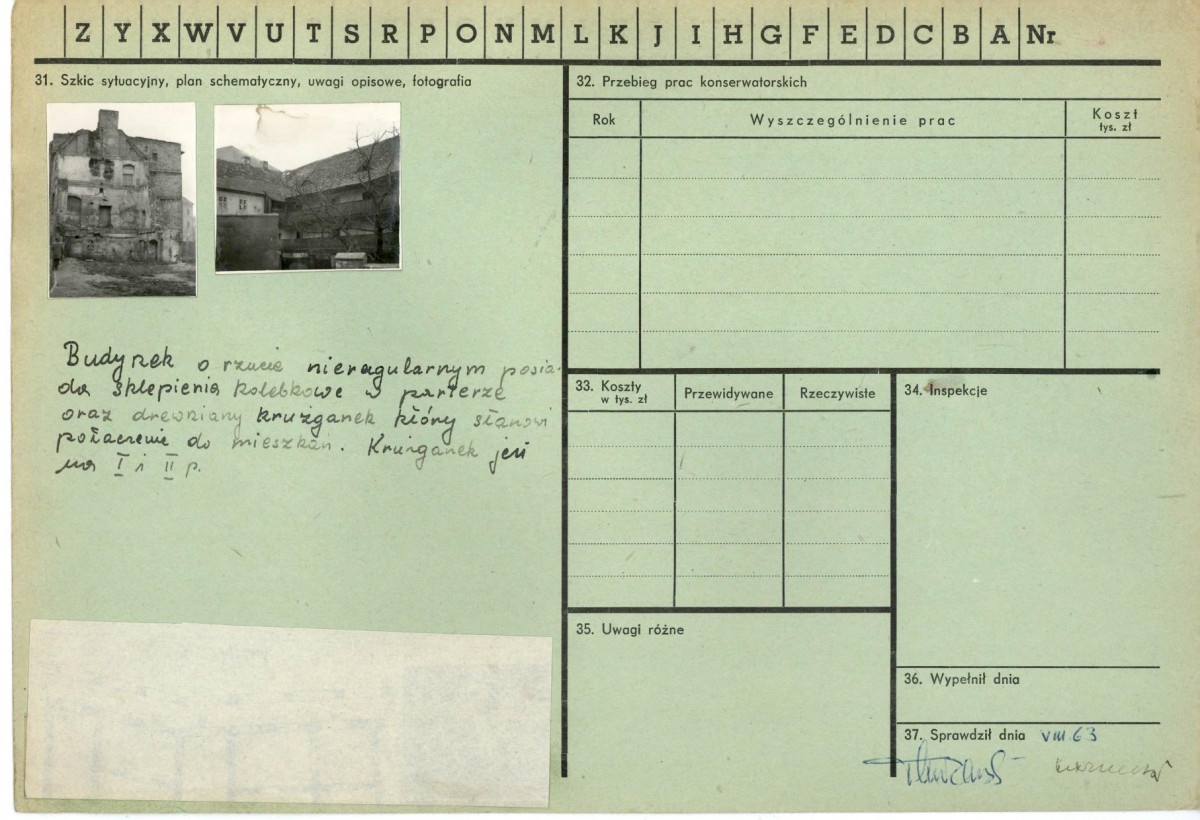 Z Y X W V U T S R P O N M L K J I H G F E D C B A Nr
31. Szkic sytuacyjny, plan schematyczny, uwagi opisowe, fotografia
Budynek o rzucie nieragularnym posia-
da sklepienia kolebkowe w parterze
oraz drewniany krużganek który stanowi
połaczenie do mieszkań. Krużganek jest
na I i II p.
32. Przebieg prac konserwatorskich
Rok
Wyszczególnienie prac
Koszt
tys. zł
33. Koszty
w tys. zł
Przewidywane
Rzeczywiste
34. Inspekcje
35. Uwagi różne
36. Wypełnił dnia
37. Sprawdził dnia VIII 63